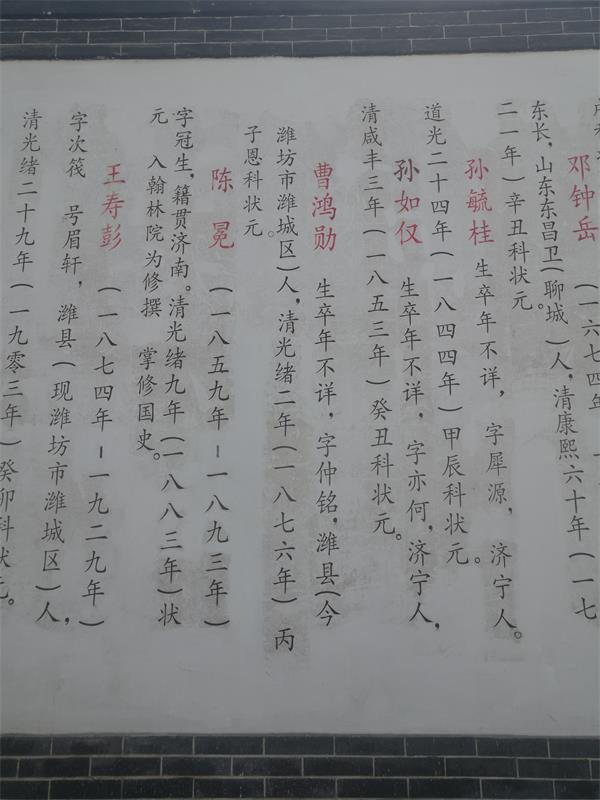 邓钟岳 (一六七四年
东长，山东东昌卫(聊城)人，清康熙六十年(一七
二一年)辛丑科状元。
孙毓桂 生卒年不详，字犀源，济宁人。
道光二十四年(一八四四年)甲辰科状元。
孙如仅 生卒年不详，字亦何，济宁人，
清咸丰三年(一八五三年)癸丑科状元。
曹鸿勋 生卒年不详，字仲铭，潍县(今
潍坊市潍城区)人，清光绪二年(一八七六年)丙
子恩科状元。
陈冕 (一八五九年-一八九三年)
字冠生，籍贯济南。清光绪九年(一八八三年)状
元 入翰林院为修撰 掌修国史。
王寿彭 (一八七四年-一九二九年)
字次筏 号眉轩，潍县(现潍坊市潍城区)人，
清光绪二十九年(一九零三年)癸卯科状元。